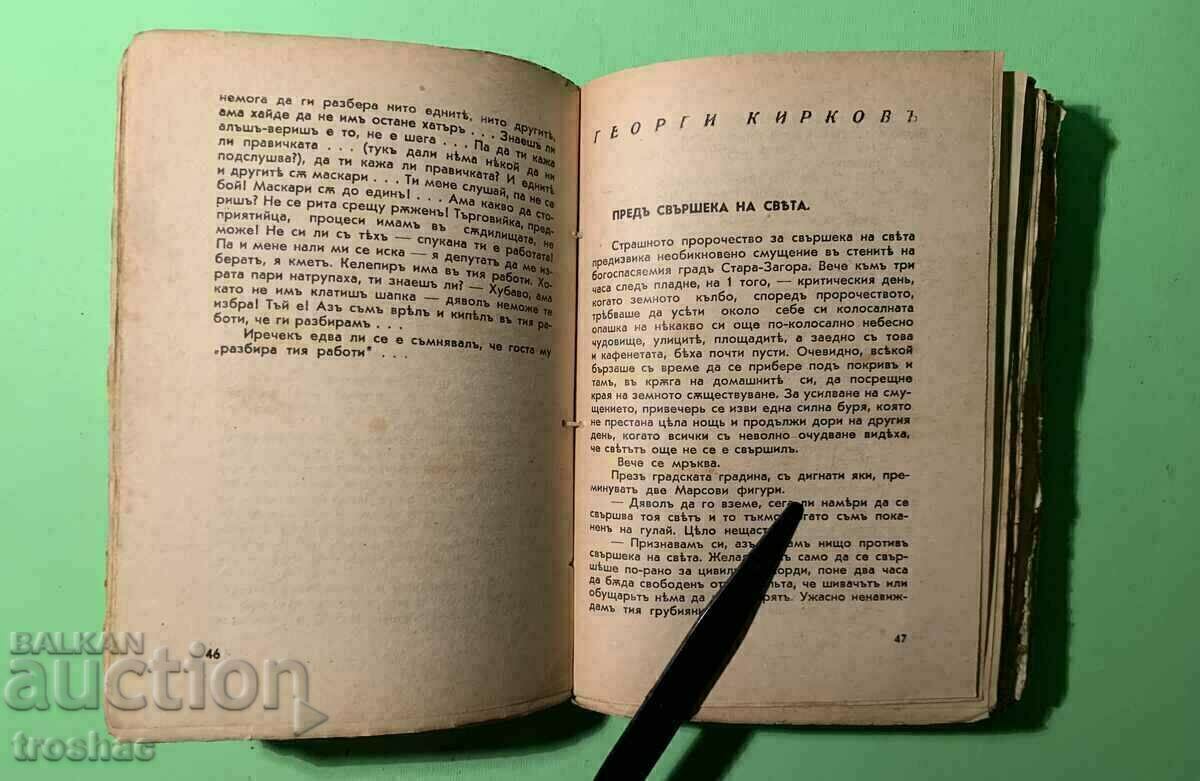 немога да ги разбера нито еднитѣ, нито другитѣ,
ама хайде да не имъ остане хатъръ . . . Знаешъ ли
алъшъ-веришъ е то, не е шега . . . Па да ти кажа
ли правичката . . . (тукъ дали нѣма нѣкой да ни
подслушва?), да ти кажа ли правичката? И еднитѣ
и другитѣ сѫ маскари . . . Ти мене слушай, па не се
бой! Маскари сѫ до единъ! . . . Ама какво да сто-
ришъ? Не се рита срещу рѫженъ! Търговийка, пред-
приятийца, процеси имамъ въ сѫдилищата, не
може! Не си ли съ тѣхъ — спукана ти е работата!
Па и мене нали ми се иска — я депутатъ да ме из-
бератъ, я кметъ. Келепиръ има въ тия работи. Хо-
рата пари натрупаха, ти знаешъ ли? — Хубаво, ама
като не имъ клатишъ шапка — дяволъ неможе те
избра! Тъй е! Азъ съмъ врѣлъ и кипѣлъ въ тия ра-
боти, че ги разбирамъ . . .
Иречекъ едва ли се е съмнявалъ, че госта му
„разбира тия работи" . . .
46
ГЕОРГИ КИРКОВЪ
ПРЕДЪ СВЪРШЕКА НА СВѢТА.
Страшното пророчество за свършека на свѣта
предизвика необикновено смущение въ стенитѣ на
богоспасяемия градъ Стара-Загора. Вече къмъ три
часа следъ пладне, на 1 того, — критическия день,
когато земното кълбо, споредъ пророчеството,
трѣбваше да усѣти около себе си колосалната
опашка на нѣкакво си още по-колосално небесно
чудовище, улицитѣ, площадитѣ, а заедно съ това
и кафенетата, бѣха почти пусти. Очевидно, всѣкой
бързаше съ време да се прибере подъ покривъ и
тамъ, въ крѫга на домашнитѣ си, да посрещне
края на земното сѫществуване. За усилване на сму-
щението, привечерь се изви една силна буря, която
не престана цѣла нощь и продължи дори на другия
день, когато всички съ неволно очудване видѣха,
че свѣтътъ още не се е свършилъ.
Вече се мръква.
Презъ градската градина, съ дигнати яки, пре-
минуватъ две Марсови фигури.
— Дяволъ да го вземе, сега ли намѣри да се
свършва тоя свѣтъ и то тъкмо гато съмъ пока-
ненъ на гулай. Цѣло нещаст
— Признавамъ си, азъ амъ нищо противъ
свършека на свѣта. Желая ъ само да се свър-
шѣше по-рано за цивилн орди, поне два часа
да бѫда свободенъ от льта, че шивачътъ или
обущарьтъ нѣма да рятъ. Ужасно ненавиж-
дамъ тия грубиян
47
BALKAN
auction
troshac